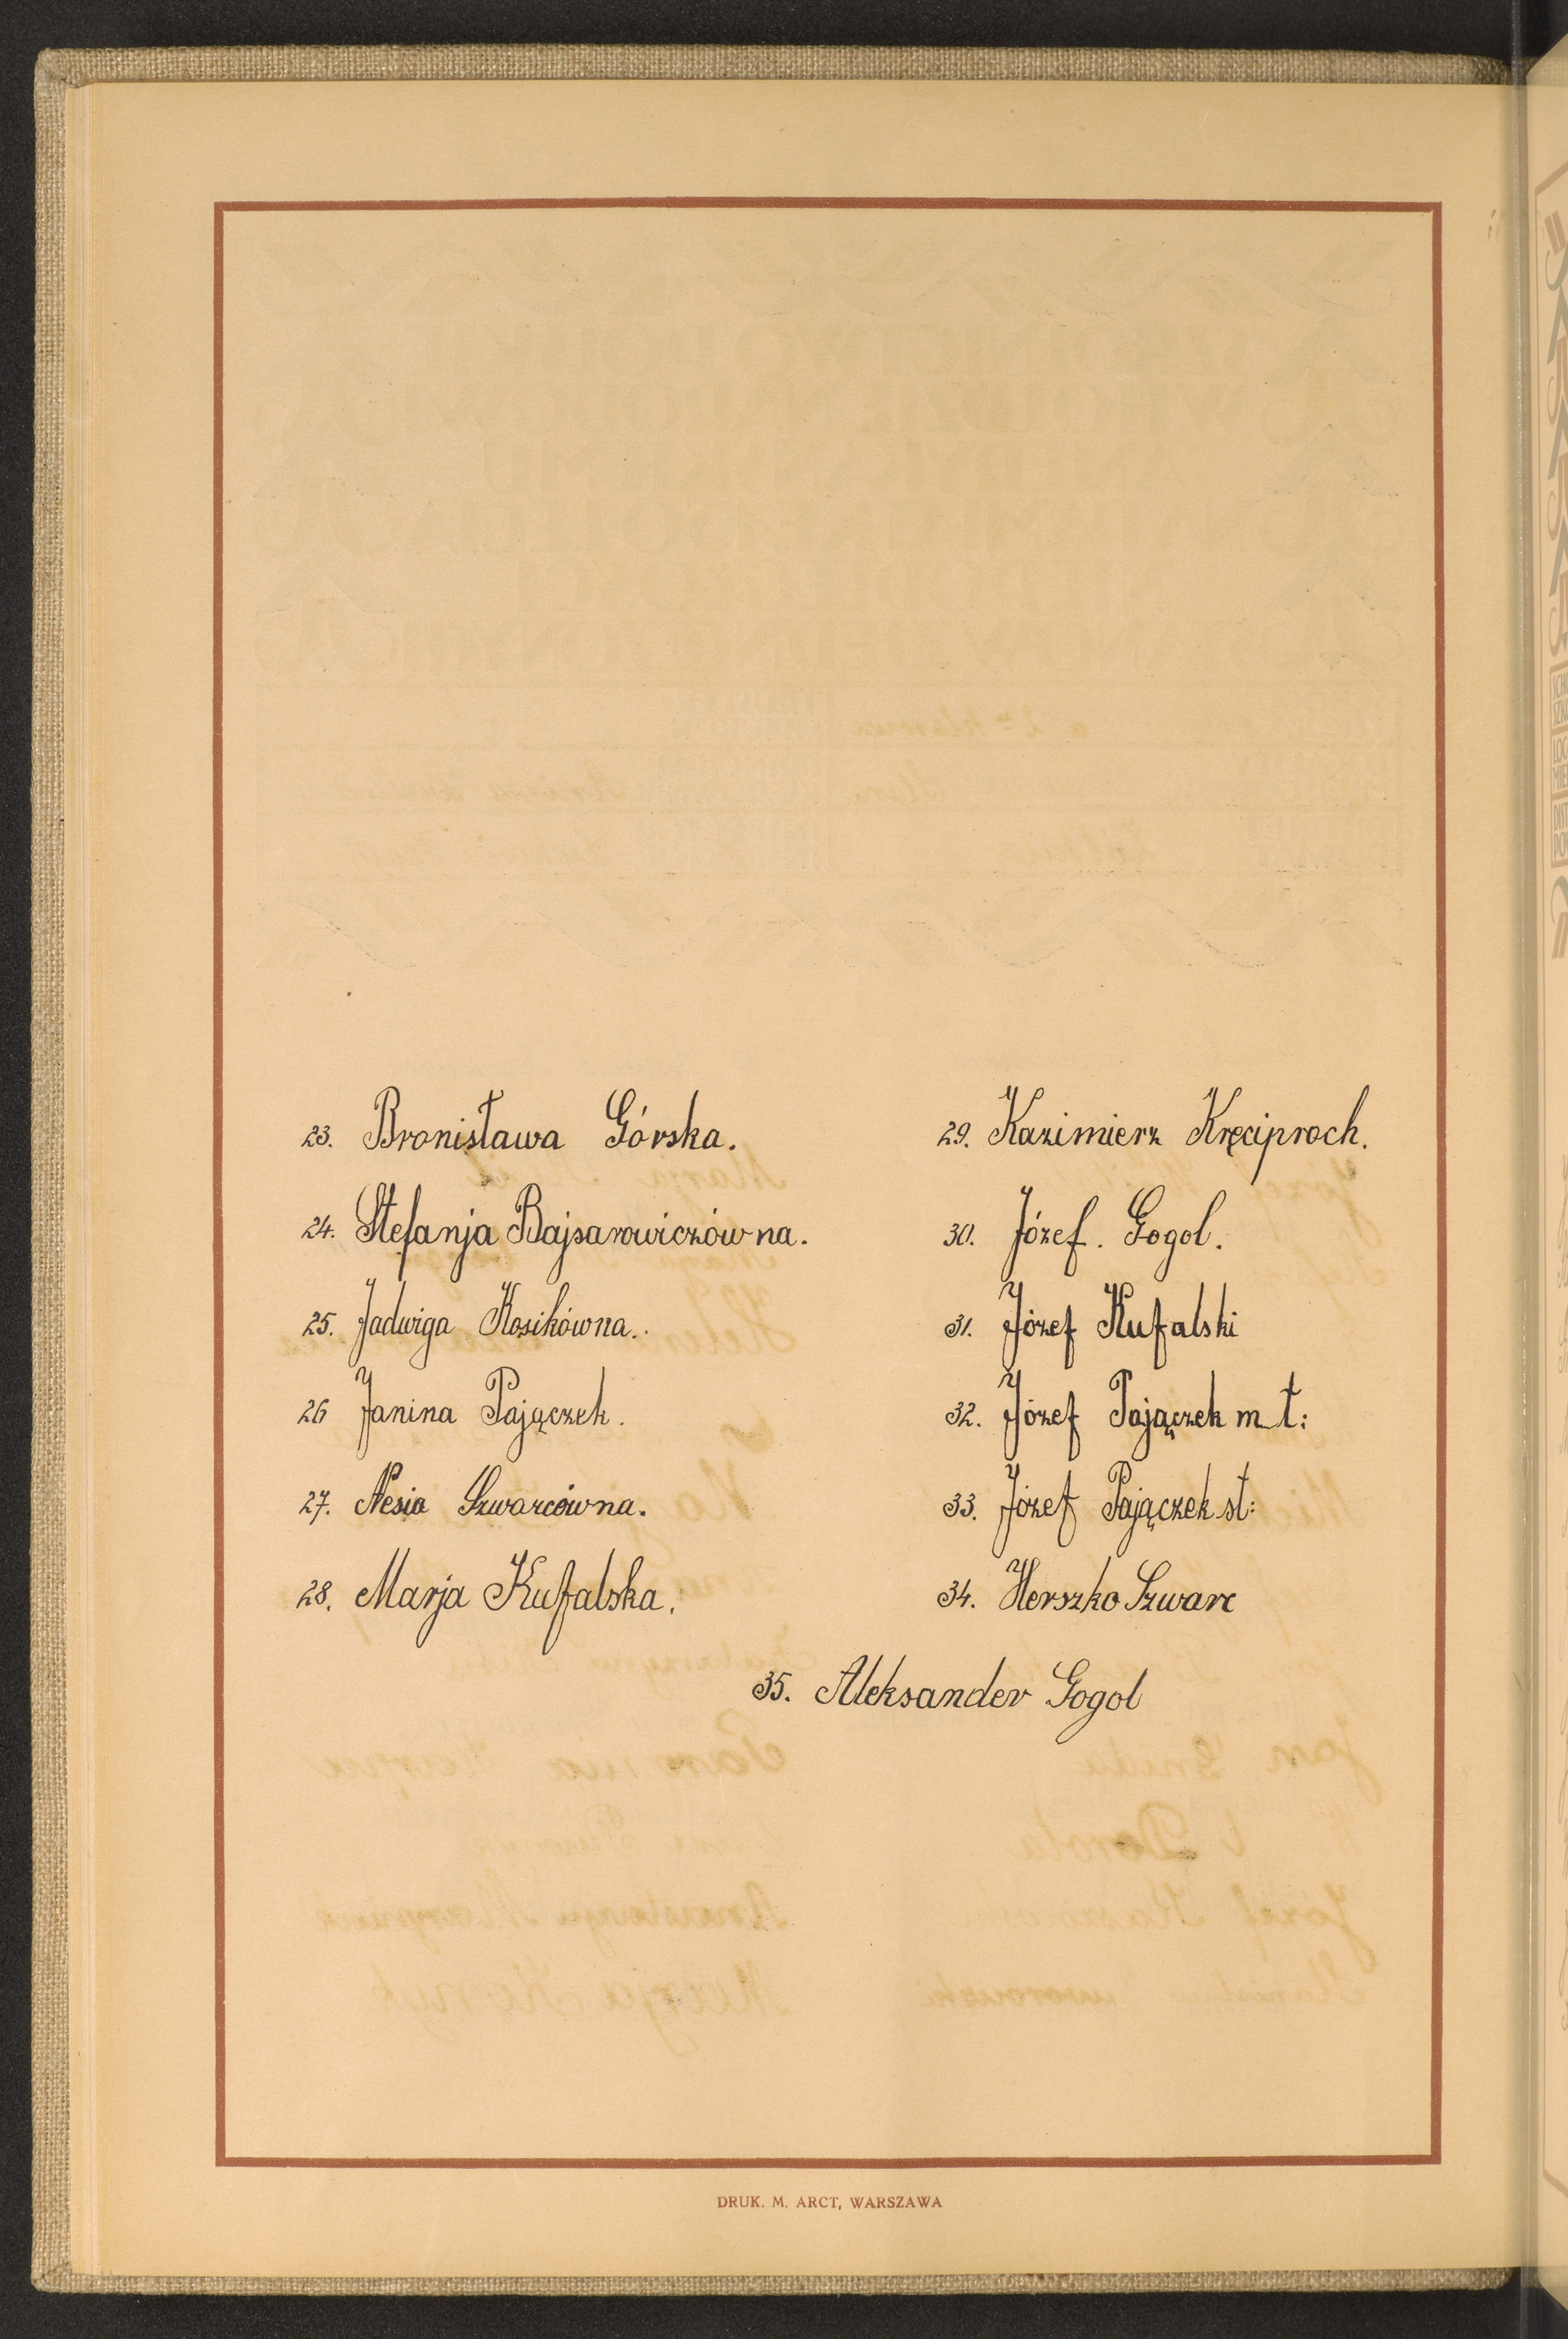 23. Bronisława Górska.
24. Stefanja Bajsarowiczówna.
25. Jadwiga Kosikówna.
26 Janina Pajączek.
27. Nesia Szwarcówna.
28. Marja Kufalska.
29. Kazimierz Kręciproch.
30. Józef. Gogol.
31. Józef Kufalski
32. Józef Pajączek mł:
33. Józef Pajączek st:
34. Herszko Szwarc
35. Aleksander Gogol
DRUK. M. ARCT, WARSZAWA